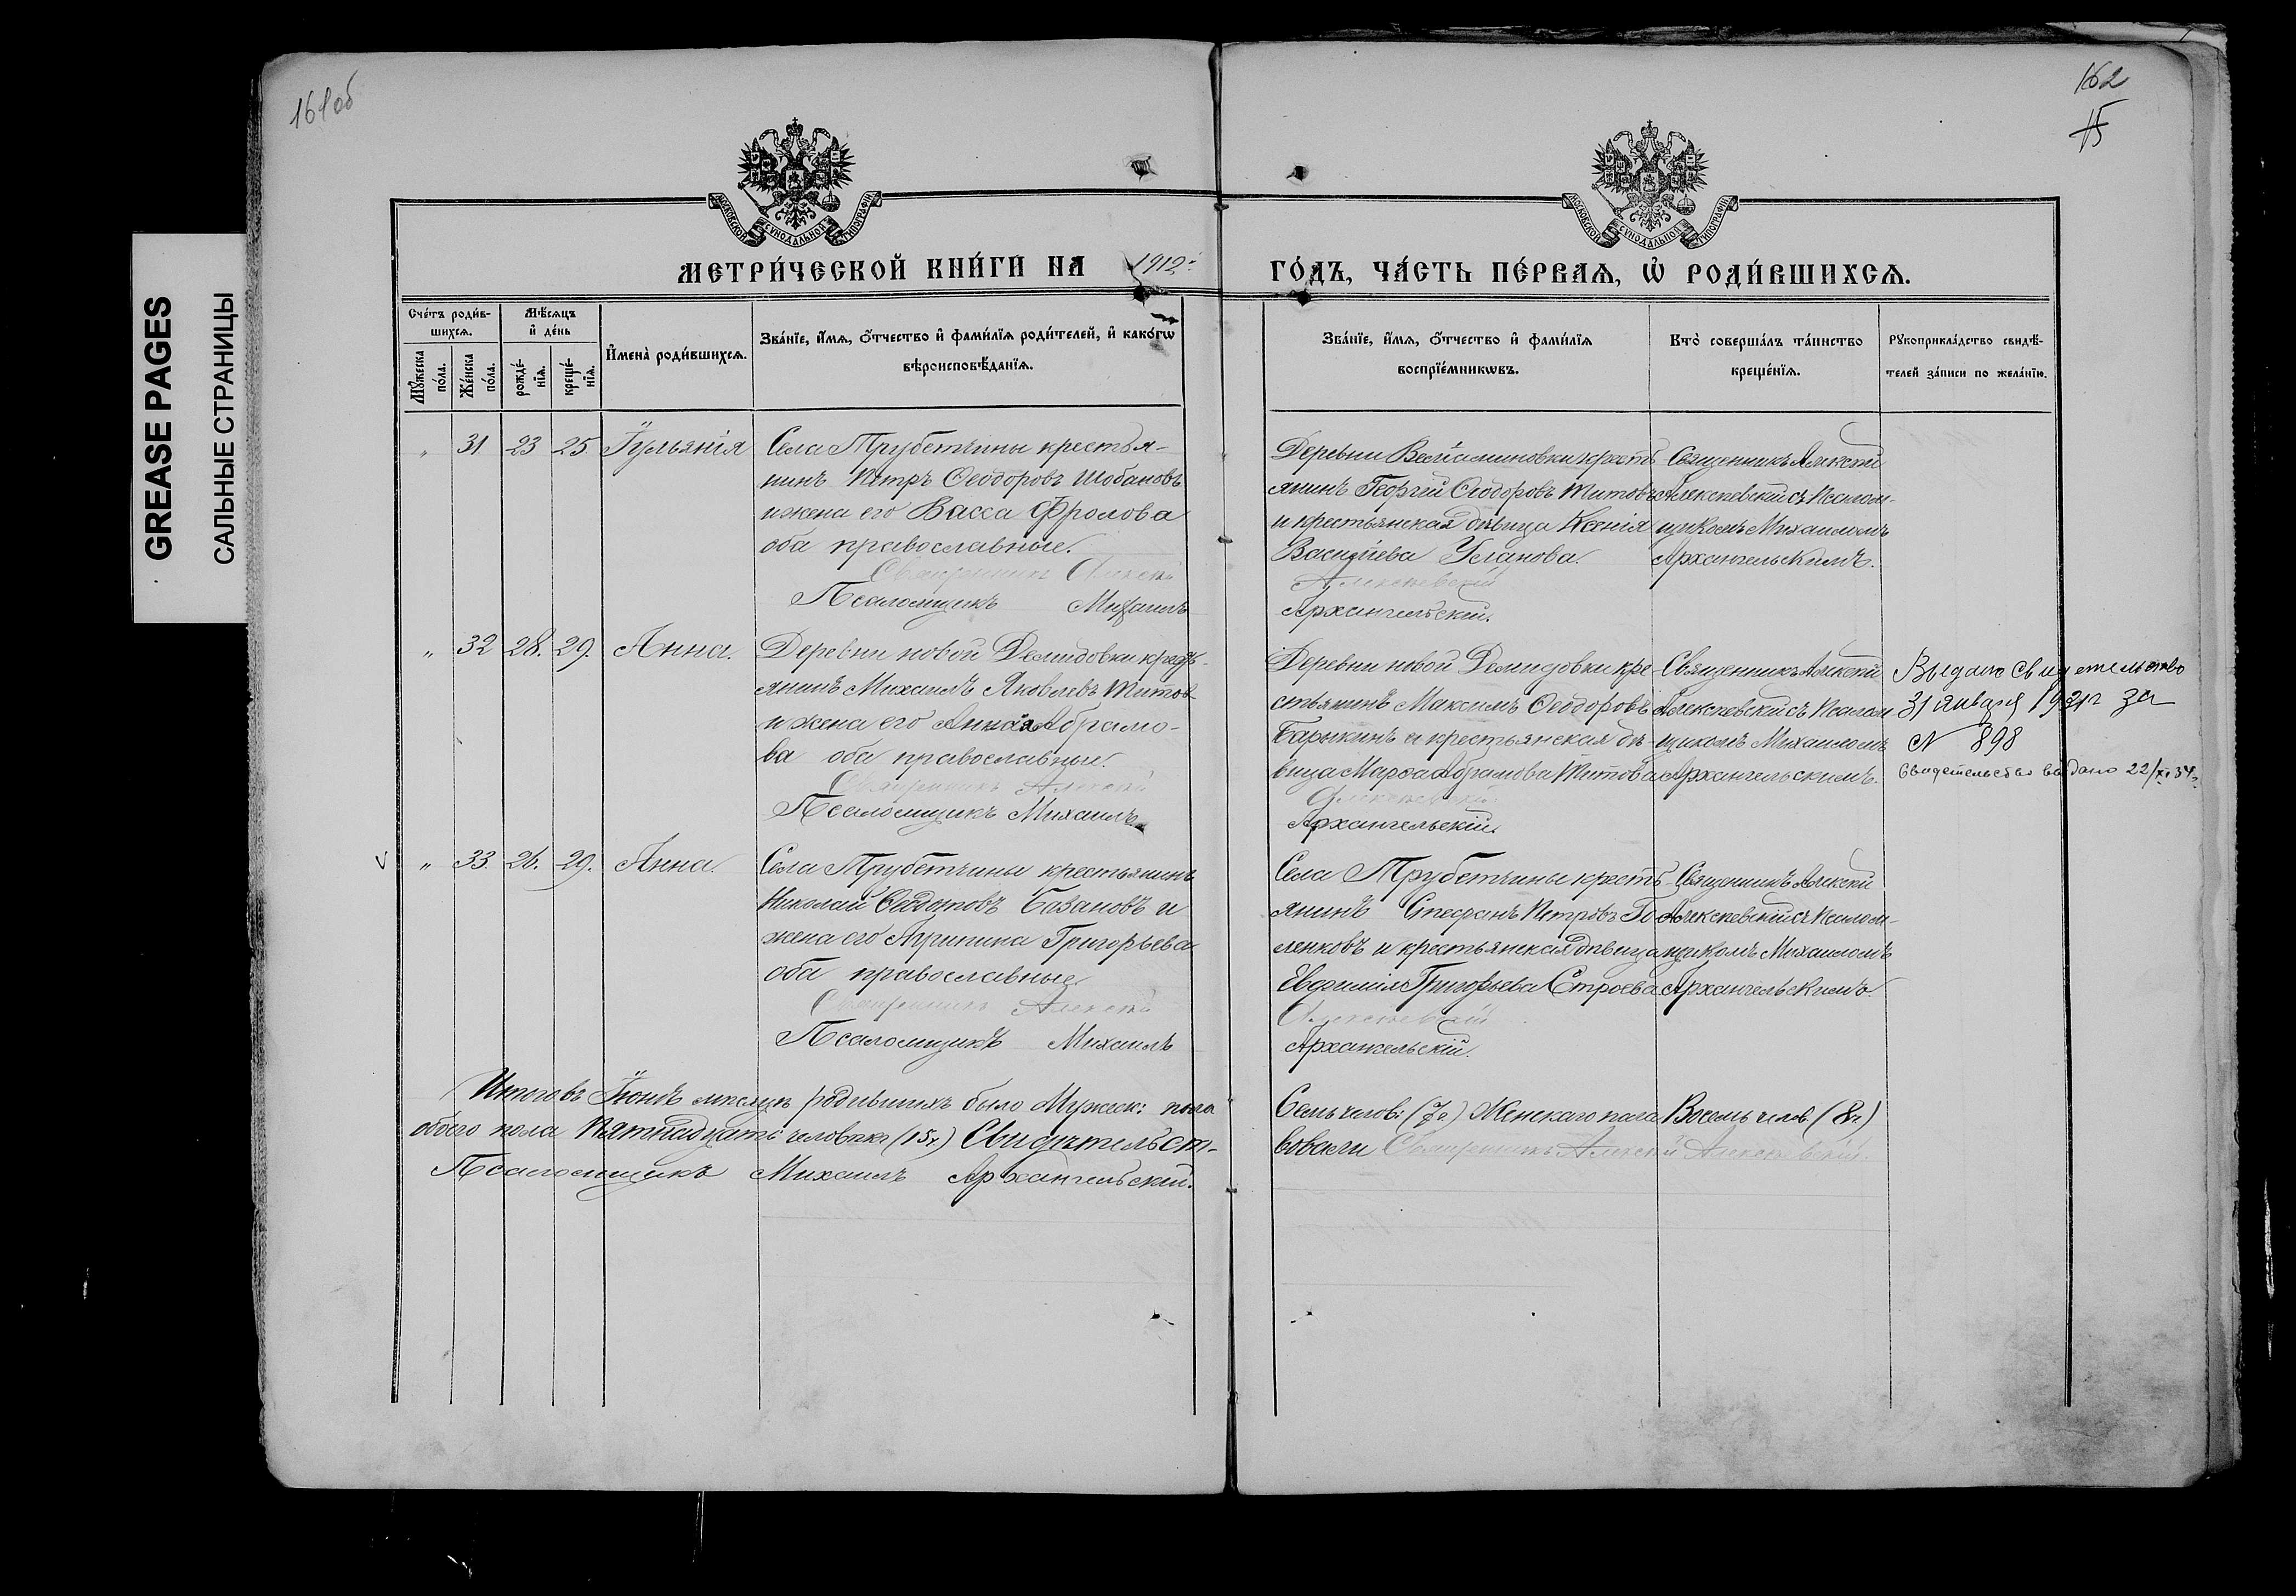 GREASE PAGES
САЛЬНЫЕ СТРАНИЦЫ
161 об
162
15
МОСКОВСКОЙ СѴНОДАЛЬНОЙ ТИПОГРАФІИ
МОСКОВСКОЙ СѴНОДАЛЬНОЙ ТИПОГРАФІИ
МЕТРИ́ЧЕСКОЙ КНИ́ГИ НА 1912 ГО́ДЪ, ЧА́СТЬ ПЕ́РВАѦ, Ѡ҆ РОДИ́ВШИХСѦ.
Сче́тъ роди́в-
шихсѧ.
Мꙋ́жеска по́ла.
Же́нска по́ла.
Мѣ́сѧцъ и҆ де́нь
рожде́-нїѧ.
креще́-нїѧ.
И҆мена̀ роди́вшихсѧ.
Зва́нїе, и҆́мѧ, ѻ҆́тчество и҆ фами́лїѧ роди́телей, и҆ како́гѡ
вѣроисповѣ́данїѧ.
Зва́нїе, и҆́мѧ, ѻ҆́тчество и҆ фами́лїѧ
воспрїе́мникѡвъ.
Кто̀ соверша́лъ та́инство
креще́нїѧ.
Рꙋкоприкла́дство свидѣ́-
телей за́писи по жела́нїю.
" 31 23 25 Іульянія
Села Трубетчины крестья-
нинъ Петръ Ѳеодоровъ Шобановъ
и жена его Васса Фролова
оба православные.
Священникъ Алексѣй
Псаломщикъ Михаилъ
Деревни Вельяминовки кресть
янинъ Георгій Ѳеодоровъ Титовъ
и крестьянская дѣвица Ксенія
Васильева Уланова.
Алексѣевскій
Архангельскій.
Священникъ Алексѣй
Алексѣевскій съ Псалом-
щикомъ Михаиломъ
Архангельскимъ.
" 32 28. 29. Анна.
Деревни новой Демидовки кресть-
янинъ Михаилъ Яковлевъ Титовъ
и жена его Анна Абрамо-
ва оба православные.
Священникъ Алексѣй
Псаломщикъ Михаилъ
Деревни новой Демидовки кре-
стьянинъ Максимъ Ѳеодоровъ
Барыкинъ и крестьянская дѣ-
вица Марѳа Абрамова Титова
Алексѣевскій
Архангельскій.
Священникъ Алексѣй
Алексѣевскій съ Псалом
щикомъ Михаиломъ
Архангельскимъ.
Выдано свидетельство
31 января 1931 г за
N 898
Свидетельство выдано 22/XI 34 г
" 33. 26. 29. Анна.
Села Трубетчины крестьянинъ
Николай Ѳедотовъ Базановъ и
жена его Агрипина Григорьева
оба православные
Священникъ Алексѣй
Псаломщикъ Михаилъ
Села Трубетчины кресть
янинъ Стефанъ Петровъ Го
ленковъ и крестьянская дѣвица
Евфимія Григорьева Строева
Алексѣевскій
Архангельскій.
Священникъ Алексѣй
Алексѣевскій съ Псалом-
щикомъ Михаиломъ
Архангельскимъ.
Итого въ Іюнѣ мѣсяцѣ родившихъ было Мужеск: пола Семь челов: (7 ч.) Женскаго пола Восемь челов. (8 ч.)
обоего пола Пятнадцать человѣкъ (15 ч.) Свидѣтельст-
вовали Священникъ Алексѣй Алексѣевскій.
Псаломщикъ Михаилъ Архангельскій.